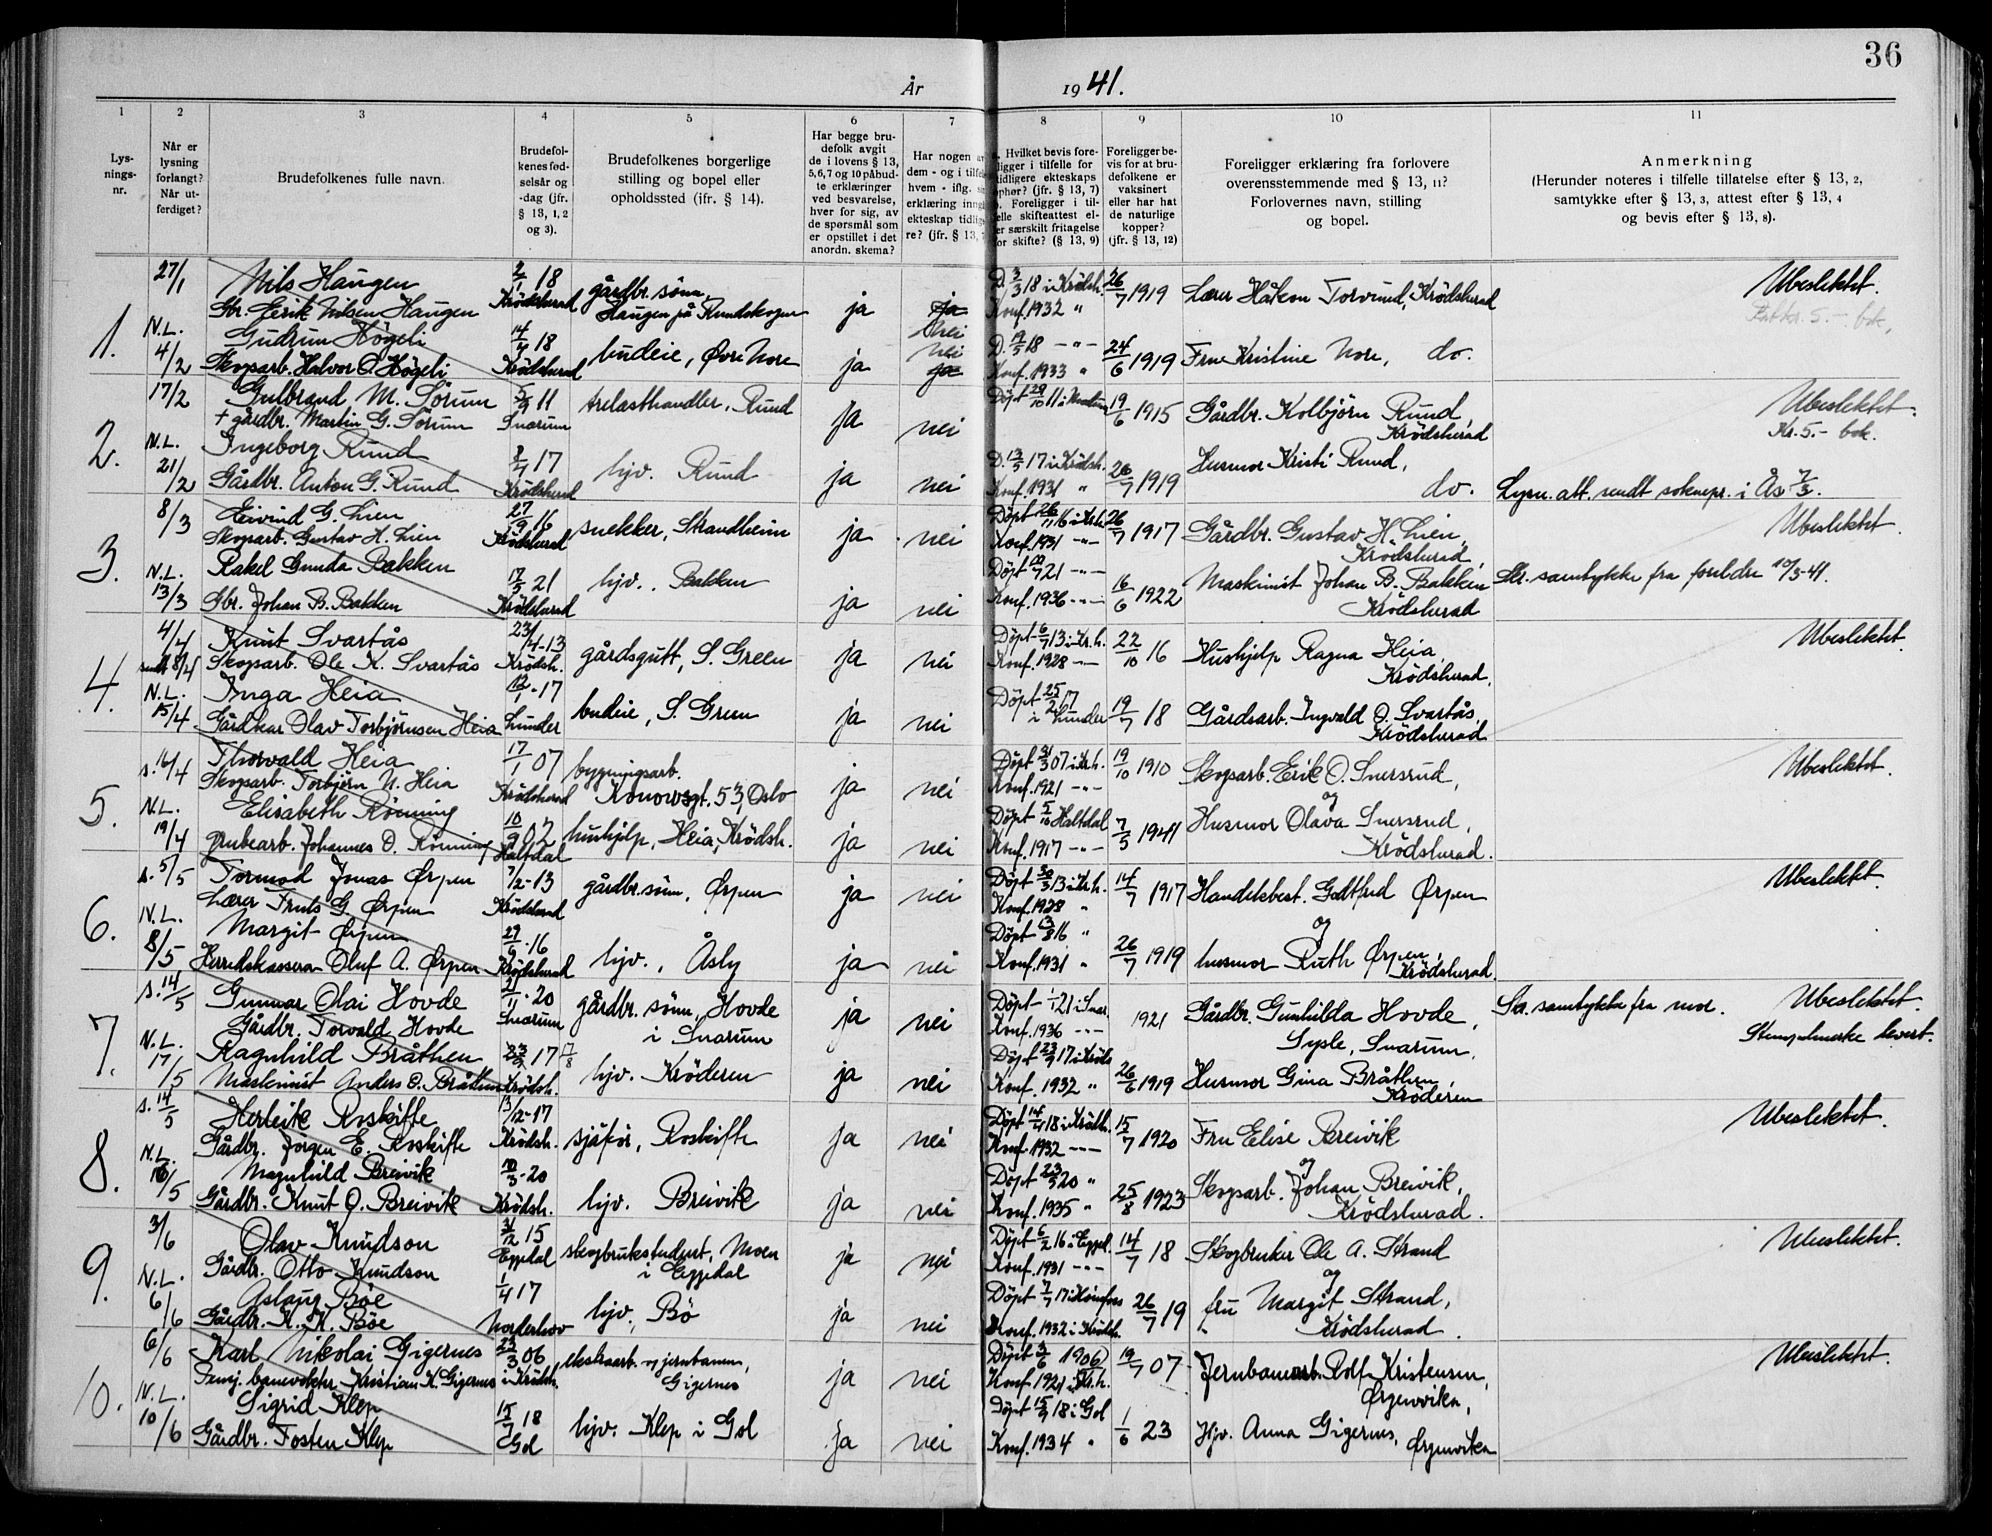 36
År 1941.
1 2 3 4 5 6 7 8 9 10 11
Lys-
nings-
nr.
Når er
lysning
forlangt?
Når ut-
ferdiget?
Brudefolkenes fulle navn.
Brudefol-
kenes fød-
selsår og
-dag (jfr.
§ 13, 1, 2
og 3).
Brudefolkenes borgerlige
stilling og bopel eller
opholdssted (jfr. § 14).
Har begge bru-
defolk avgit
de i lovens § 13,
5, 6, 7 og 10 påbud-
te erklæringer
ved besvarelse,
hver for sig, av
de spørsmål som
er opstillet i det
anordn. skema?
Har nogen av
dem - og i tilfe
hvem - iflg. si
erklæring inng
ekteskap tidlig
re? (jfr. § 13,
Hvilket bevis fore-
ligger i tilfelle for
tidligere ekteskaps
ophør? (jfr. § 13, 7)
Foreligger i til-
elle skifteattest el-
er særskilt fritagelse
or skifte? (§ 13, 9)
Foreligger be-
vis for at bru-
defolkene er
vaksinert
eller har hat
de naturlige
kopper?
(jfr. § 13, 12)
Foreligger erklæring fra forlovere
overensstemmende med § 13, 11?
Forlovernes navn, stilling
og bopel.
Anmerkning
(Herunder noteres i tilfelle tillatelse efter § 13, 2,
samtykke efter § 13, 3, attest efter § 13, 4
og bevis efter § 13, 8).
1. 27/1 Nils Haugen 2/1 18 gårdbr. sønn, D. 3/3 18 i Krødsh. 26/7 1919 Lærer Håkon Torvund, Krødsherad Ubeslektet.
Gbr. Eerik Nilsen Haugen Krødsherad Haugen på Rundskogen ja ja nei Konf. 1932 "
N.L. Gudrun Høgeli 14/4 18 budeie, Øvre Nore nei D. 19/5 18 - " - 24/6 1919 Frue Kristine Nore, do.
4/2 Skogsarb. Halvor O. Høgeli Krødsherad ja ja Konf. 1933 "
2. 17/2 Gulbrand M. Sørum 5/9 11 trelasthandler, Rund ja nei Døpt 29/10 11 i Modum 19/6 1915 Gårdbr. Kolbjørn Rund, Krødsherad Ubeslektet.
+ gårdbr. Martin G. Sørum Snarum Kr. 5.- bet.
N.L. Ingeborg Rund 8/4 17 hjv. Rund ja nei D. 13/5 17 i Krødsh. 26/7 1919 Husmor Kristi Rund,
21/2 Gårdbr. Anton G. Rund Krødsherad Konf. 1931 " do. Lysn. att. sendt soknepr. i Ås 7/3.
3. 8/3 Eivind G. Lien 27/9 16 snekker, Strandheim ja nei Døpt 26/11 16 i Kr.h. 26/7 1917 Gårdbr. Gustav H. Lien, Ubeslektet.
Skogsarb. Gustav H. Lien Krødsherad Konf. 1931 - " - Krødsherad
N.L. Rakel Gunda Bakken 17/5 21 hjv., Bakken ja nei Døpt 10/7 21 - " - 16/6 1922 Maskinist Johan B. Bakken Skr. samtykke fra foreldre 10/3-41.
13/3 Gbr. Johan B. Bakken Krødsherad Konf. 1936 - " - Krødsherad
4. 4/4 Knut Svartås 23/4-13 gårdsgutt, S. Green ja nei Døpt 6/7 13 i Kr.h. 22/10 16 Hushjelp Ragna Heia, Ubeslektet.
Skogsarb. Ole K. Svartås Krødsh. Konf. 1928 - " - Krødsherad.
N.L. Inga Heia 12/1-17 budeie, S. Green ja nei Døpt 25/2 17 i Lunder 19/7 18 Gårdsarb. Ingvald O. Svartås,
15/4 Gårdkar Olav Torbjørnsen Heia Lunder Krødsherad
5. s. 16/4 Thorvald Heia 17/1 07 bygningsarb. ja nei Døpt 31/3 07 i Kr.h. 19/10 1910 Skogsarb. Erik O. Snersrud, Ubeslektet.
Skogsarb. Torbjørn N. Heia Krødsherad Konowsgt. 53, Oslo Konf. 1921 - " - og
N.L. Elisabeth Rønning 10/9 02 hushjelp, Heia, Krødsh. ja nei Døpt 5/10 Haltdal 7/5 1941 Husmor Olava Snersrud,
19/4 grubearb. Johannes O. Rønning Haltdal Konf. 1917 - " - Krødsherad.
6. s. 5/5 Tormod Jonas Ørpen 7/2-13 gårdbr. sønn, Ørpen ja nei Døpt 30/3 13 i Kr.h. 14/7 1917 Handelsbest. Godtfred Ørpen Ubeslektet.
Lærer Truls G. Ørpen Krødsherad Konf. 1928 " og
N.L. Margit Ørpen 29/6-16 hjv., Åsly ja nei Døpt 13/8 16 " 26/7 1919 husmor Ruth Ørpen,
8/5 Herredskasserer Oluf A. Ørpen Krødsherad Konf. 1931 " Krødsherad.
7. s. 14/5 Gunnar Olai Hovde 21/11-20 gårdbr. sønn, Hovde ja nei Døpt 1/1 21 i Snar. 1921 Gårdbr. Gunhilda Hovde, Skr. samtykke fra mor. Ubeslektet.
Gårdbr. Torvald Hovde Snarum i Snarum Konf. 1936 - " - Sysle, Snarum. Stempelmerke levert.
N.L. Ragnhild Bråthen 23/8 17 17/8 hjv. Krøderen ja nei Døpt 23/9 17 i Krøds 26/6 1919 Husmor Gina Bråthen,
17/5 Maskinist Anders O. Bråthen Krødsh. Konf. 1932 " Krøderen
8. s. 14/5 Herleik Roskifte 13/12-17 sjåfør, Roskifte ja nei Døpt 14/4 18 i Krødh. 15/7 1920 Fru Elise Breivik Ubeslektet.
Gårdbr. Jørgen E. Roskifte Krødsh. Konf. 1932 - " - og
N.L. Magnhild Breivik 10/3-20 hjv. Breivik ja nei Døpt 23/5 20 " 25/8 1923 Skogsarb. Johan Breivik,
18/5 Gårdbr. Knut O. Breivik Krødsh. Konf. 1935 " Krødsherad.
9. 3/6 Olav Knudson 31/12 15 skogbrukstudent, Moen ja nei Døpt 6/2 16 i Eggd. 14/7 18 Skogbruker Ole A. Strand Ubeslektet.
Gårdbr. Otto Knudson Eggedal i Eggedal Konf. 1931 - " - og
N.L. Aslaug Bøe 1/4 17 hjv., Bø ja nei Døpt 7/7 17 i Hønefoss 26/7 19 fru Margit Strand,
6/6 Gårdbr. K. K. Bøe Norderhov Konf. 1932 i Krødsh. Krødsherad.
10. 6/6 Karl Nikolai Gigernes 23/3 06 ekstraarb. v. jernbanen, ja nei Døpt 3/6 1906 19/7 07 Jernbanearb. Rolf Kristensen, Ubeslektet.
Pensj. banevokter Kristian K. Gigernes i Krødsh. Gigernes Konf. 1921 i Kr.h. Ørgenvika,
N.L. Sigrid Klep 15/7 18 hjv. Klep i Gol ja nei Døpt 15/9 18 i Gol 1/6 23 Hjv. Anna Gigernes, Ørgenvika
10/6 Gårdbr. Tosten Klep Gol Konf. 1934 "